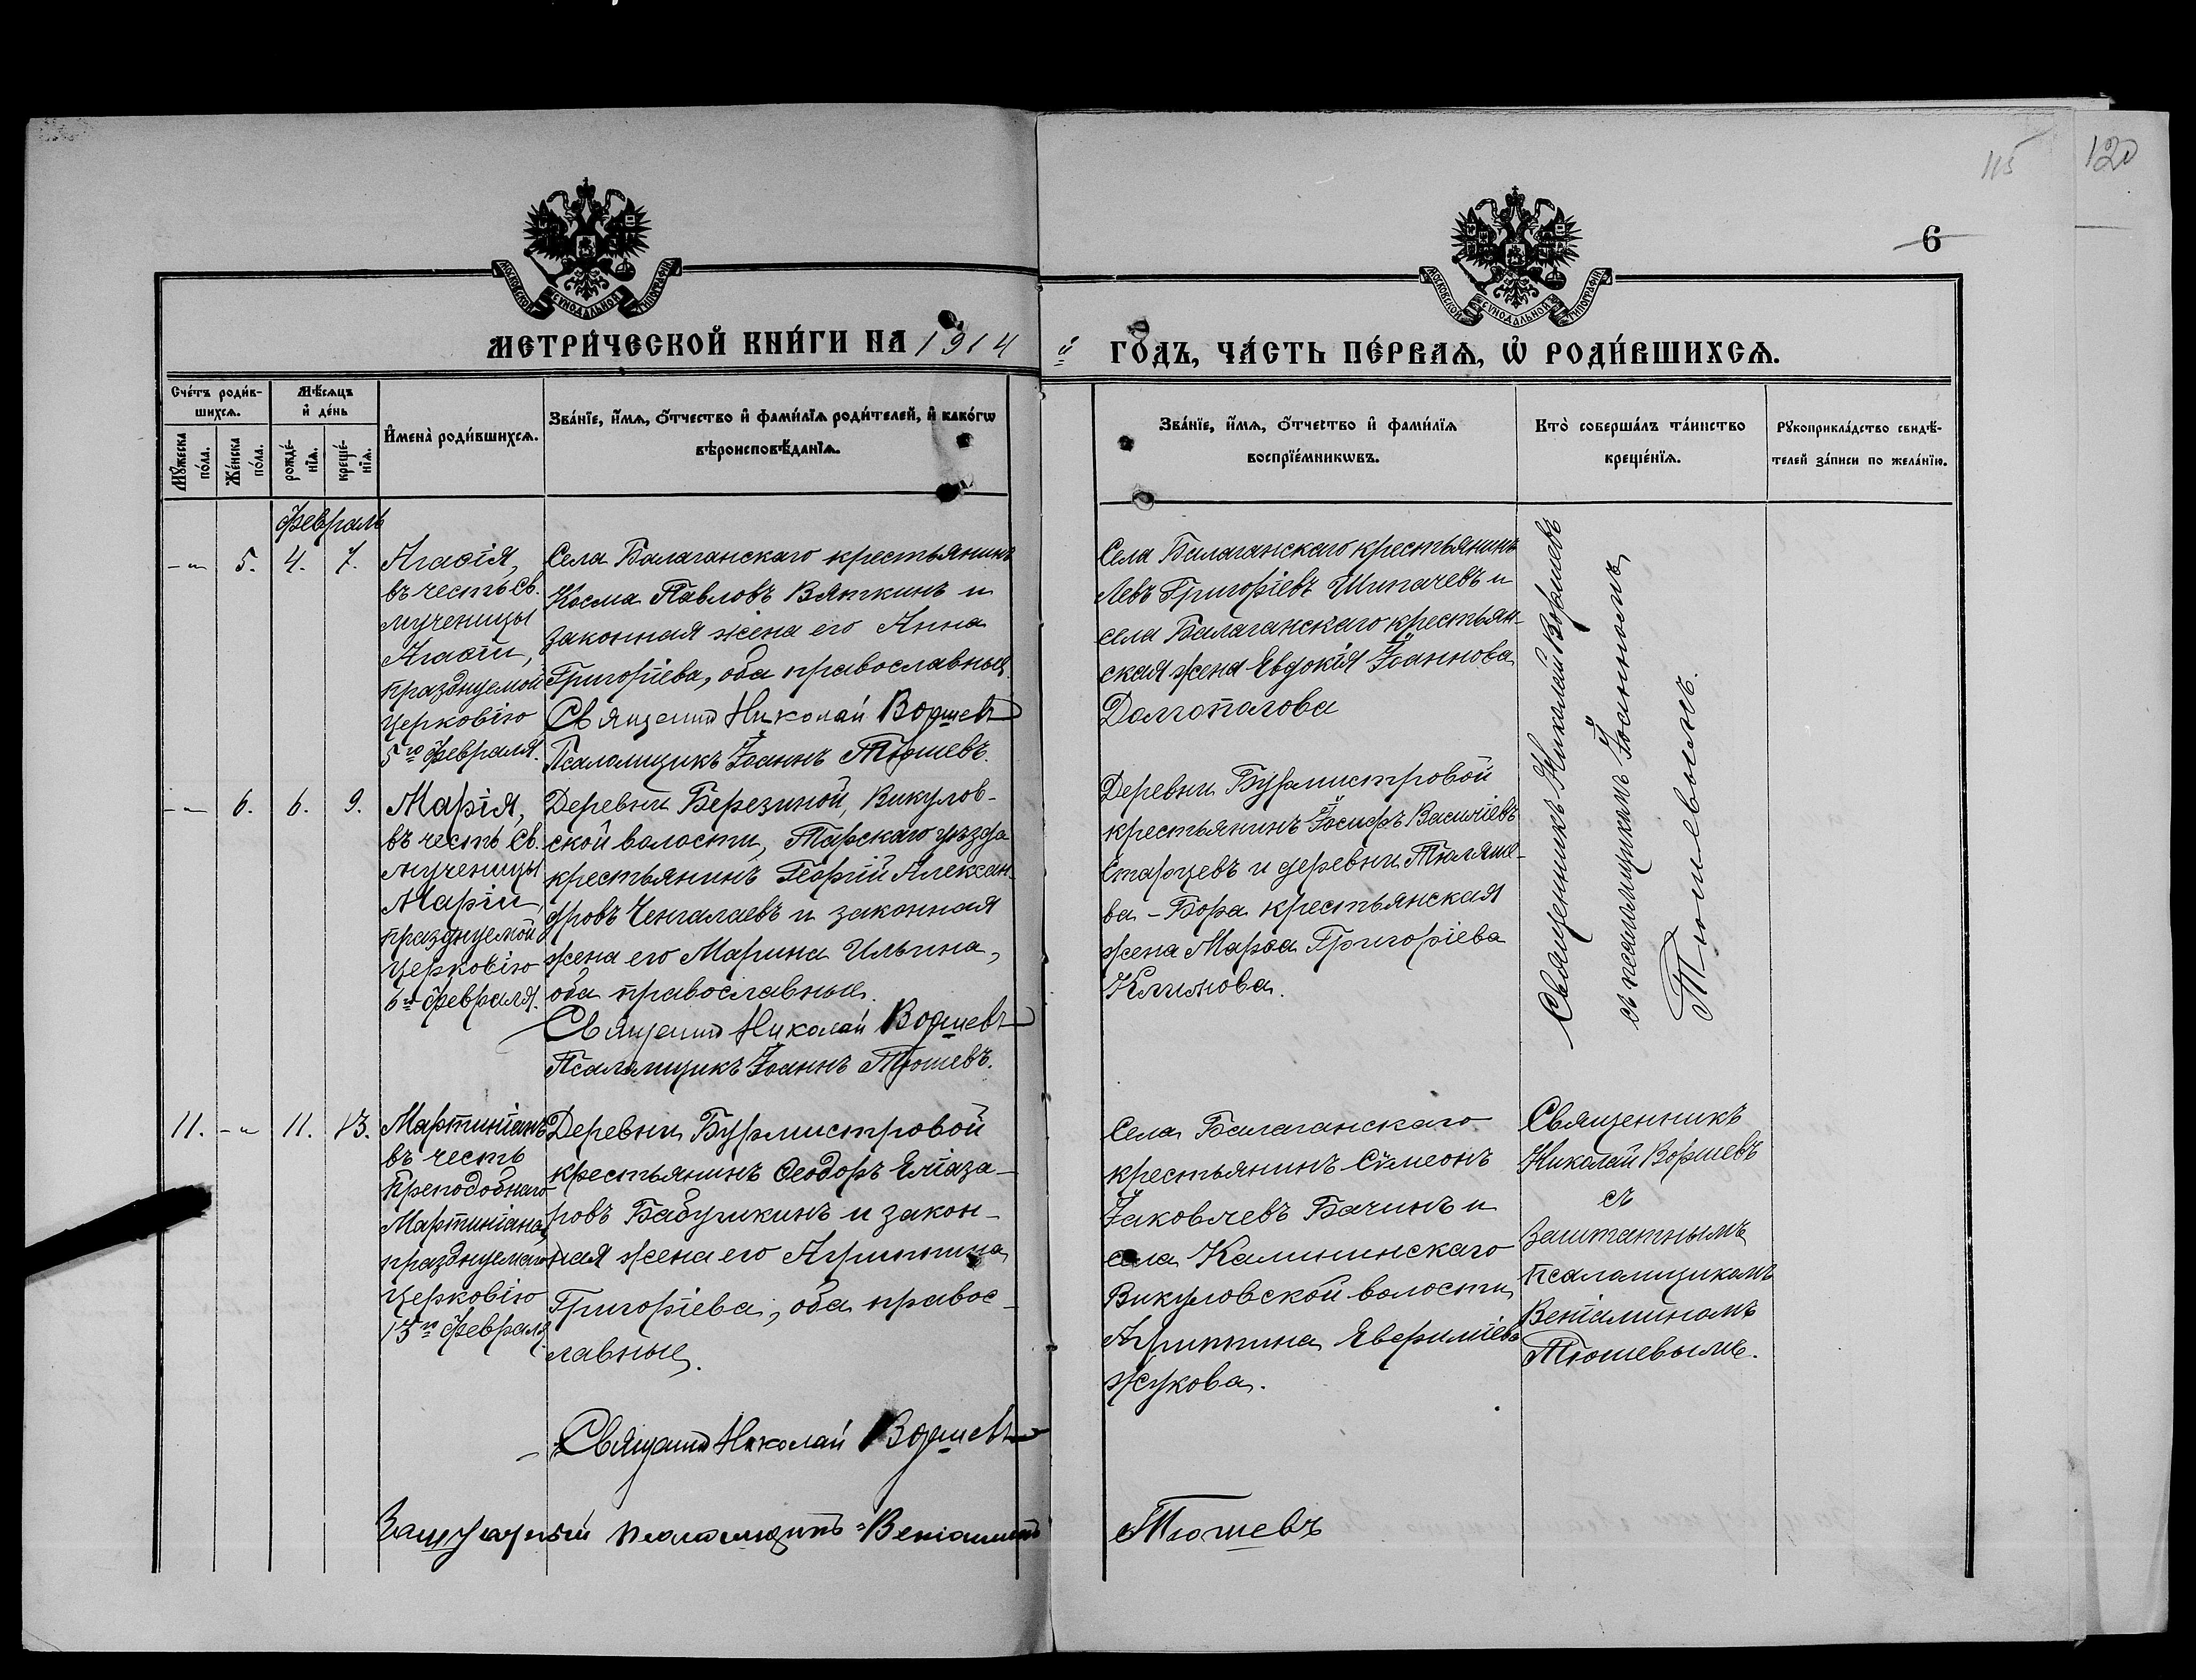 115
120
6
МОСКОВСКОЙ СѴНОДАЛЬНОЙ ТИПОГРАФІИ
МОСКОВСКОЙ СѴНОДАЛЬНОЙ ТИПОГРАФІИ
МЕТРИ́ЧЕСКОЙ КНИ́ГИ НА 1914
й ГО́ДЪ, ЧА́СТЬ ПЕ́РВАѦ, Ѡ҆ РОДИ́ВШИХСѦ.
Сче́тъ роди́в-
шихсѧ.
Мѣ́сѧцъ
и҆ де́нь
Мꙋ́жеска
по́ла.
Же́нска
по́ла.
рожде́-
нїѧ.
креще́-
нїѧ.
И҆мена̀ роди́вшихсѧ.
Зва́нїе, и҆́мѧ, ѻ҆́тчество и҆ фами́лїѧ роди́телей, и҆ како́гѡ
вѣроисповѣ́данїѧ.
Зва́нїе, и҆́мѧ, ѻ҆́тчество и҆ фами́лїѧ
воспрїе́мникѡвъ.
Кто̀ соверша́лъ та́инство
креще́нїѧ.
Рꙋкоприкла́дство свидѣ́-
телей за́писи по жела́нїю.
Февраль
-„- 5. 4. 7.
Агаѳія,
въ честь Св.
мученицы
Агаѳіи,
празднуемой
Церковію
5го февраля.
Села Балаганскаго крестьянинъ
Косма Павловъ Вяткинъ и
законная жена его Анна
Григоріева, оба православные.
Священникъ Николай Воршевъ
Псаломщикъ Іоаннъ Тюшевъ.
Села Балаганскаго крестьянинъ
Левъ Григоріевъ Шипачевъ и
села Балаганскаго крестьян-
ская жена Евдокія Іоаннова
Долгополова
Священникъ Николай Воршевъ
съ псаломщикомъ Іоанномъ
Тюшевымъ.
-„- 6. 6. 9.
Марія,
въ честь Св.
мученицы
Маріи,
празднуемой
Церковію
6го февраля.
Деревни Березиной, Викулов-
ской волости, Тарскаго уѣзда
крестьянинъ Георгій Алексан-
дровъ Ченгалаевъ и законная
жена его Марина Ильина,
оба православные.
Священникъ Николай Воршевъ
Псаломщикъ Іоаннъ Тюшевъ.
Деревни Бурмистровой
крестьянинъ Іосифъ Василіевъ
Старцевъ и деревни Тюляше-
ва-Бора крестьянская
жена Марѳа Григоріева
Климова.
11. -„- 11. 13.
Мартиніанъ
въ честь
Преподобнаго
Мартиніана,
празднуемаго
Церковію
13го февраля
Деревни Бурмистровой
крестьянинъ Ѳеодоръ Еліаза-
ровъ Бабушкинъ и закон-
ная жена его Агриппина
Григоріева, оба правос-
лавные.
Священникъ Николай Воршевъ
Села Балаганскаго
крестьянинъ Сѵмеонъ
Іаковлевъ Бачинъ и
села Калининскаго
Викуловской волости
Агриппина Евфиміева
Жукова.
Священникъ
Николай Воршевъ
съ
Заштатнымъ
псаломщикомъ
Веніаминомъ
Тюшевымъ.
Заштатный псаломщикъ Веніаминъ Тюшевъ